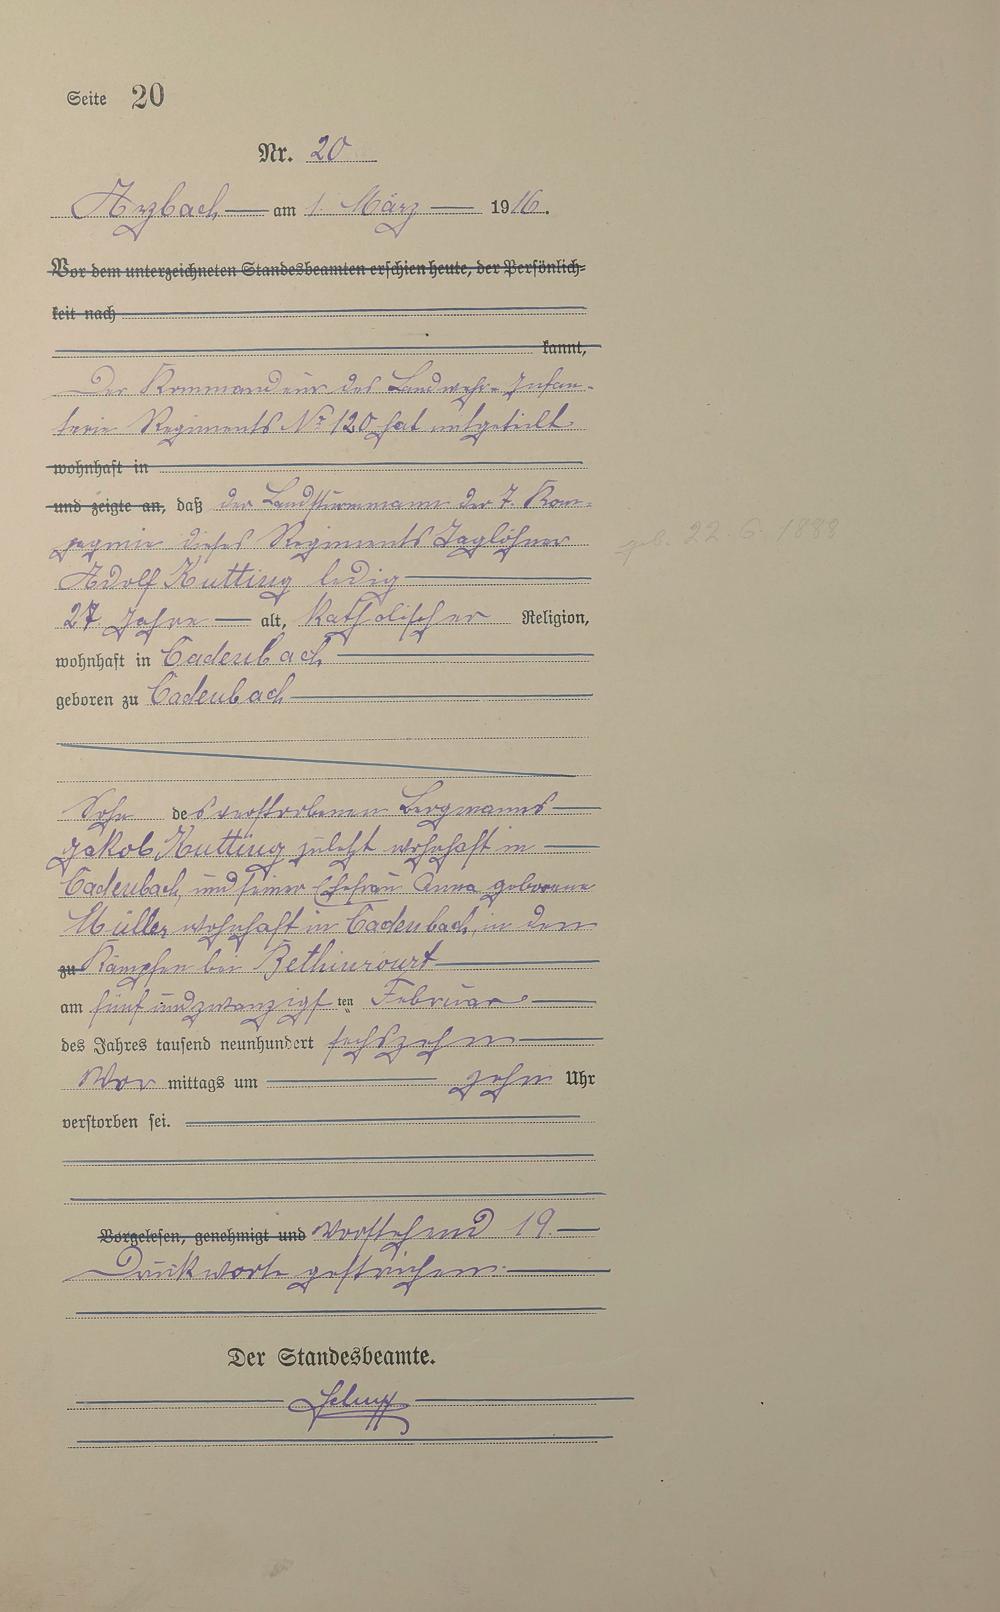 Seite 20
Nr. 20
Arzbach am 1. März 1916.
Vor dem unterzeichneten Standesbeamten erschien heute, der Persönlich-
keit nach
kannt,
Der Kommandeur des Landwehr-Infan-
terie Regiments No 120 hat mitgeteilt
wohnhaft in
und zeigte an, daß der Landsturmmann der 7. Kom-
pagnie dieses Regiments Taglöhner
Adolf Kutting ledig
27 Jahre alt, katholischer Religion,
wohnhaft in Cadenbach
geboren zu Cadenbach
Sohn des verstorbenen Bergmanns
Jakob Kutting zuletzt wohnhaft in
Cadenbach, und seiner Ehefrau Anna geborene
Müller wohnhaft in Cadenbach, in den
zu Kämpfen bei Bethincourt
am fünfundzwanzigsten Februar
des Jahres tausend neunhundert sechszehn
Vor mittags um zehn Uhr
verstorben sei.
Vorgelesen, genehmigt und Vorstehend 19.
Druckworte gestrichen.
Der Standesbeamte.
geb. 22.6.1888